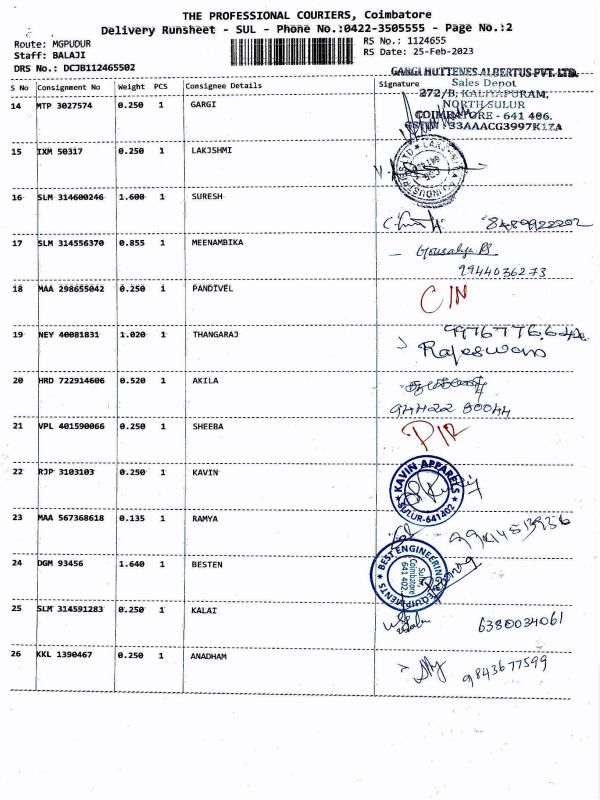 THE PROFESSIONAL COURIERS, Coimbatore
Delivery Runsheet - SUL - Phone No.:0422-3505555 - Page No.:2
Route: MGPUDUR
Staff: BALAJI
DRS No.: DCJB112465502
RS No.: 1124655
RS Date: 25-Feb-2023
S No Consignment No Weight PCS Consignee Details Signature
GARGI HUTTENES ALBERTUS PVT. LTD.
Sales Depot
272/B, KALIYAPURAM,
NORTH SULUR
COIMBATORE - 641 406.
33AAACG3997K1ZA
14 MTP 3027574 0.250 1 GARGI
15 IXM 50317 0.250 1 LAKJSHMI
16 SLM 314600246 1.600 1 SURESH
8489922202
17 SLM 314556370 0.855 1 MEENAMBIKA
9944036273
18 MAA 298655042 0.250 1 PANDIVEL C/N
19 NEY 40081831 1.020 1 THANGARAJ
Rajeswari
20 HRD 722914606 0.520 1 AKILA
94422 80044
21 VPL 401590066 0.250 1 SHEEBA P/R
22 RJP 3103103 0.250 1 KAVIN
KAVIN APPARELS
SULUR-641402
23 MAA 567368618 0.135 1 RAMYA
24 DGM 93456 1.640 1 BESTEN
BEST ENGINEERING EQUIPMENTS
Sulur
Coimbatore
641 402
25 SLM 314591283 0.250 1 KALAI
6380034061
26 KKL 1390467 0.250 1 ANADHAM
9843677599